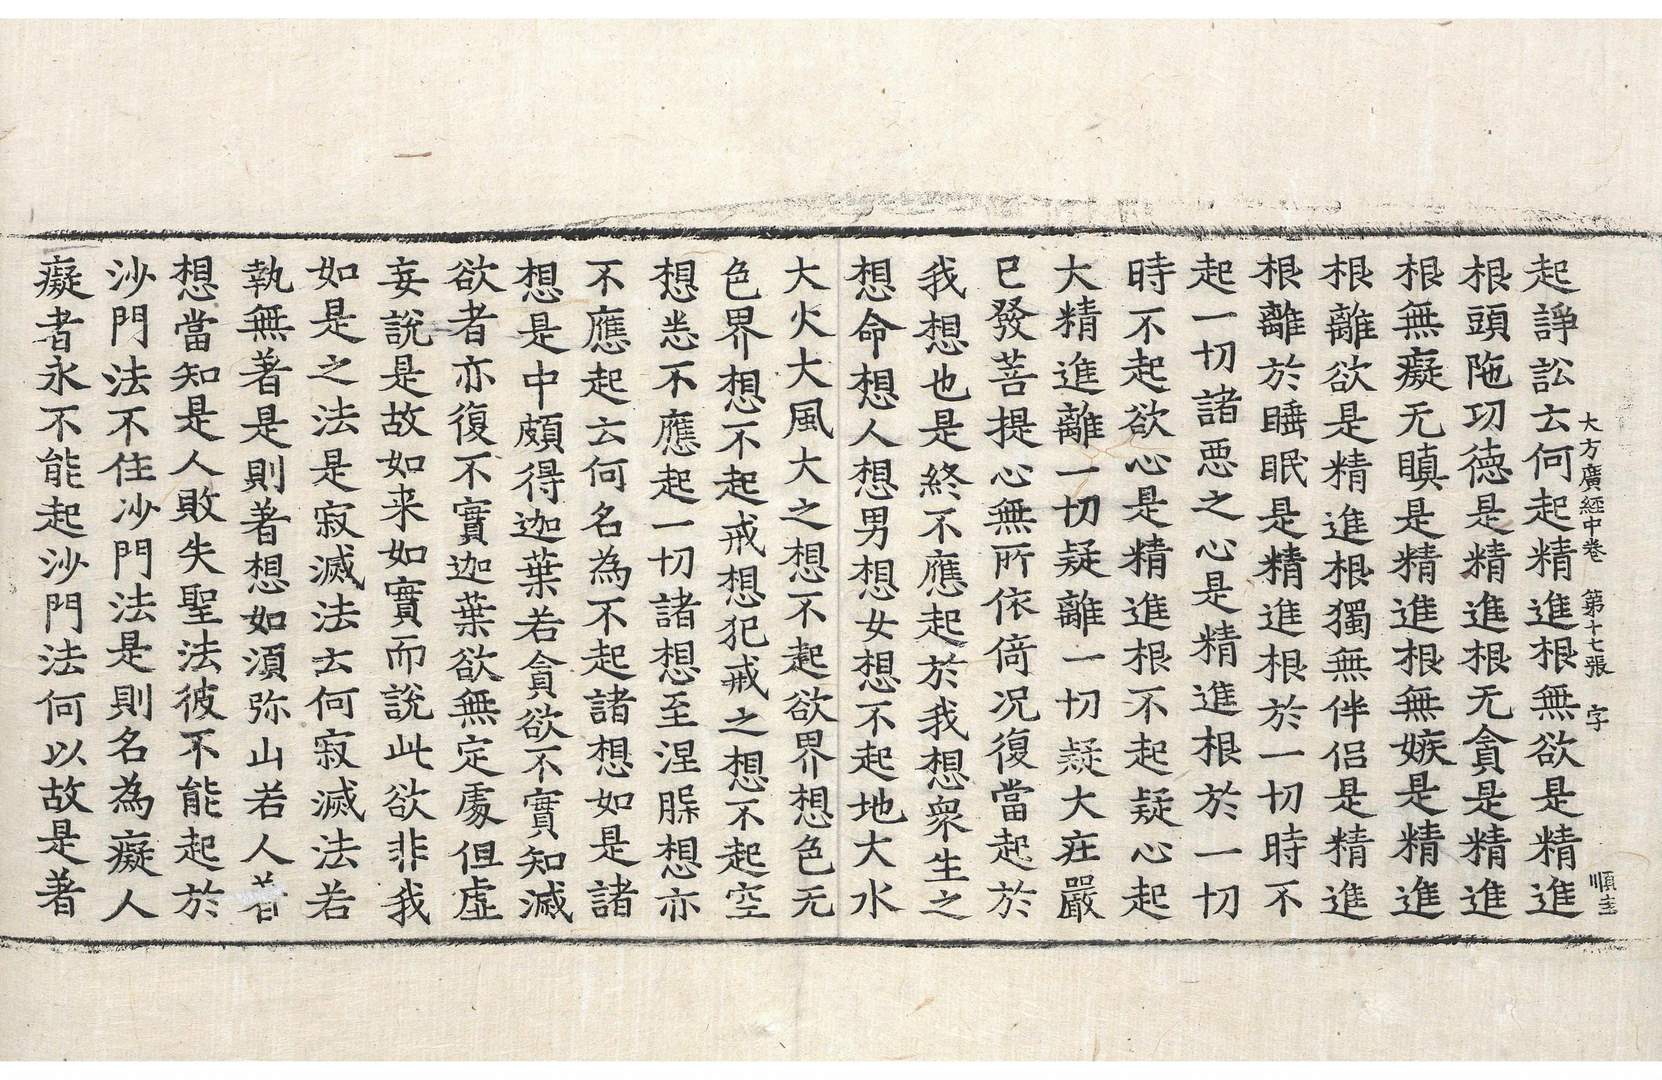 大方廣經中卷 第十七張 字 順主
起諍訟云何起精進根無欲是精進
根頭陁功德是精進根无貪是精進
根無癡无瞋是精進根無嫉是精進
根離欲是精進根獨無伴侶是精進
根離於睡眠是精進根於一切時不
起一切諸惡之心是精進根於一切
時不起欲心是精進根不起疑心起
大精進離一切疑離一切疑大庄嚴
已發菩提心無所依倚况復當起於
我想也是終不應起於我想衆生之
想命想人想男想女想不起地大水
大火大風大之想不起欲界想色无
色界想不起戒想犯戒之想不起空
想恙不應起一切諸想至涅槃想亦
不應起云何名為不起諸想如是諸
想是中頗得迦葉若貪欲不實知滅
欲者亦復不實迦葉欲無定處但虛
妄說是故如来如實而說此欲非我
如是之法是寂滅法云何寂滅法若
執無著是則著想如湏弥山若人著
想當知是人敗失聖法彼不能起於
沙門法不住沙門法是則名為癡人
癡者永不能起沙門法何以故是著